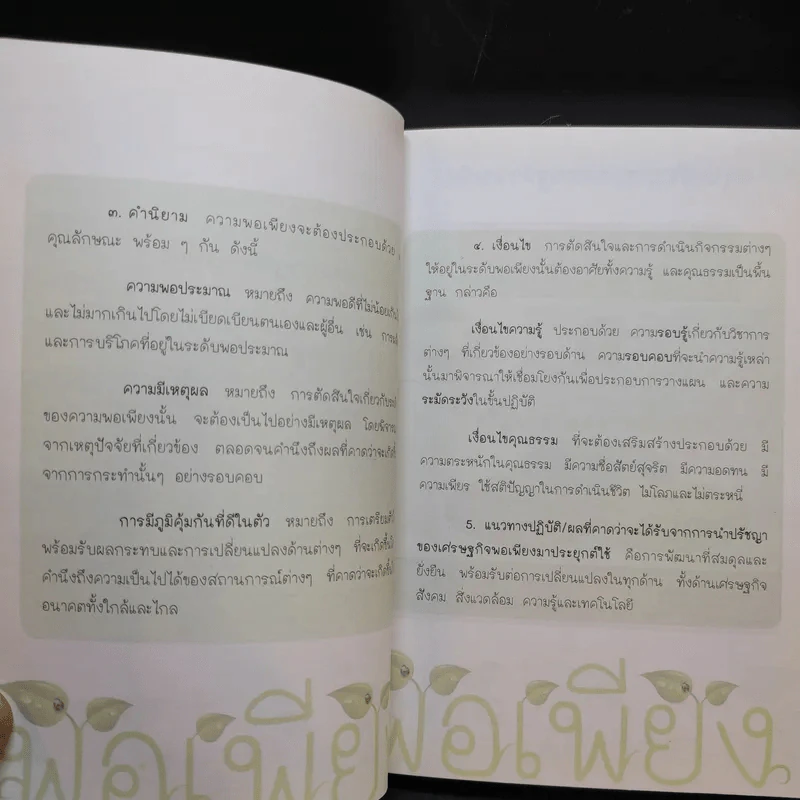 ๓. คำนิยาม ความพอเพียงจะต้องประกอบด้วย
คุณลักษณะ พร้อม ๆ กัน ดังนี้
ความพอประมาณ หมายถึง ความพอดีที่ไม่น้อยเกินไ
และไม่มากเกินไปโดยไม่เบียดเบียนตนเองและผู้อื่น เช่น การผ
และการบริโภคที่อยู่ในระดับพอประมาณ
ความมีเหตุผล หมายถึง การตัดสินใจเกี่ยวกับระ
ของความพอเพียงนั้น จะต้องเป็นไปอย่างมีเหตุผล โดยพิจาร
จากเหตุปัจจัยที่เกี่ยวข้อง ตลอดจนคำนึงถึงผลที่คาดว่าจะเกิดขึ้
จากการกระทำนั้นๆ อย่างรอบคอบ
การมีภูมิคุ้มกันที่ดีในตัว หมายถึง การเตรียมตัวใ
พร้อมรับผลกระทบและการเปลี่ยนแปลงด้านต่างๆ ที่จะเกิดขึ้นโ
คำนึงถึงความเป็นไปได้ของสถานการณ์ต่างๆ ที่คาดว่าจะเกิดขึ้นใ
อนาคตทั้งใกล้และไกล
พอเพีย
๔. เงื่อนไข การตัดสินใจและการดำเนินกิจกรรมต่างๆ
ให้อยู่ในระดับพอเพียงนั้นต้องอาศัยทั้งความรู้ และคุณธรรมเป็นพื้น
ฐาน กล่าวคือ
เงื่อนไขความรู้ ประกอบด้วย ความรอบรู้เกี่ยวกับวิชาการ
ต่างๆ ที่เกี่ยวข้องอย่างรอบด้าน ความรอบคอบที่จะนำความรู้เหล่า
นั้นมาพิจารณาให้เชื่อมโยงกันเพื่อประกอบการวางแผน และความ
ระมัดระวังในขั้นปฏิบัติ
เงื่อนไขคุณธรรม ที่จะต้องเสริมสร้างประกอบด้วย มี
ความตระหนักในคุณธรรม มีความซื่อสัตย์สุจริต มีความอดทน มี
ความเพียร ใช้สติปัญญาในการดำเนินชีวิต ไม่โลภและไม่ตระหนี่
5. แนวทางปฏิบัติ/ผลที่คาดว่าจะได้รับจากการนำปรัชญา
ของเศรษฐกิจพอเพียงมาประยุกต์ใช้ คือการพัฒนาที่สมดุลและ
ยั่งยืน พร้อมรับต่อการเปลี่ยนแปลงในทุกด้าน ทั้งด้านเศรษฐกิจ
สังคม สิ่งแวดล้อม ความรู้และเทคโนโลยี
พอเพียง